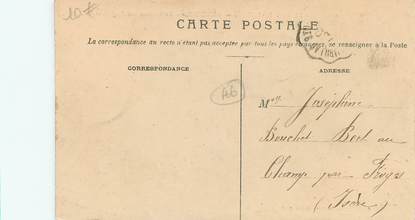 10 f
CARTE POSTALE
La correspondance au recto n'étant pas acceptée par tous les pays étrangers, se renseigner à la Poste
CORRESPONDANCE
ADRESSE
A6
Mlle Joséphine
Bouchet
Champ par
(Isère)